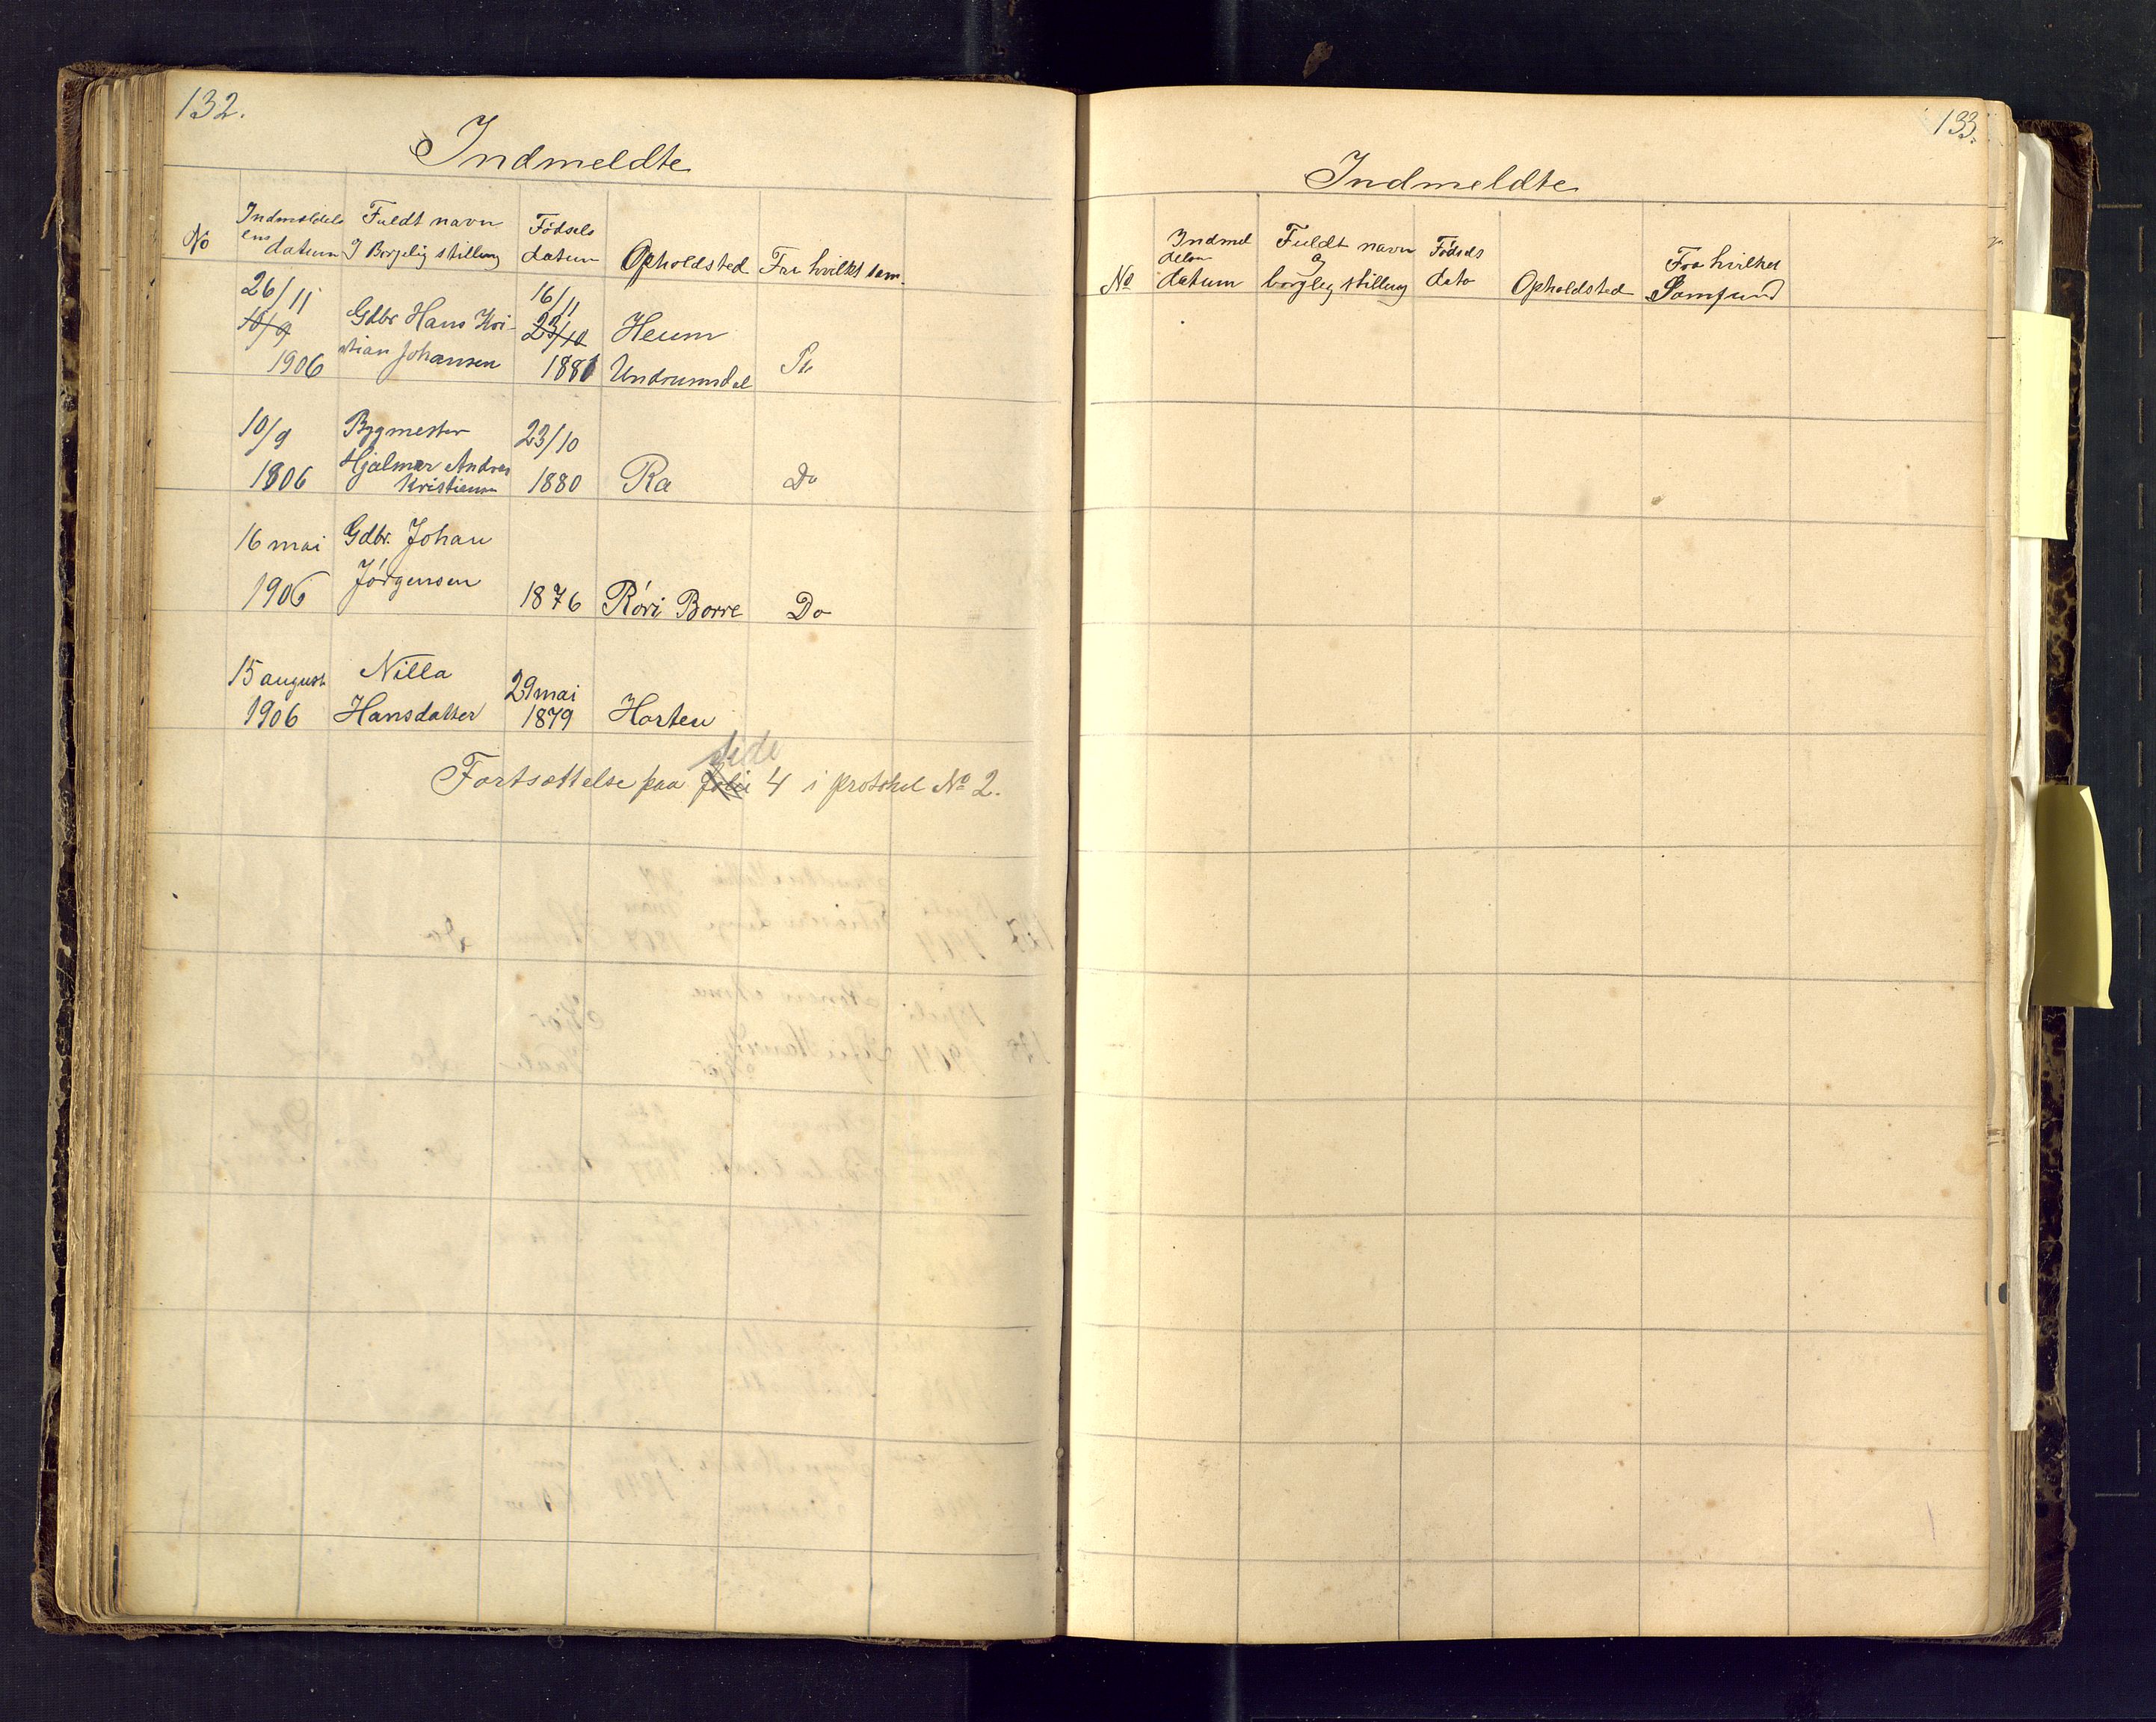 132.
Indmeldte
No
Indmeldels
ens
datum
Fuldt navn
Borgelig stilling
Födsels
datum
Opholdsted
Fra hvilket sam.
26/11
10/9
1906
Gdbr Hans Kri-
stian Johansen
16/11
23/10
1881
Heum
Undrumsdal
10/9
1806
Bygmester
Hjalmar Andreas
Kristiansen
23/10
1880
Ra
Do
16 mai
1906
Gdbr. Johan
Jörgensen
1876
Röri Borre
Do
15 august
1906
Nilla
Hansdatter
29 mai
1879
Horten
side
Fortsættelse paa folio 4 i protokol No 2.
133.
Indmeldte
No
Indmel
delsen
datum
Fuldt navn
og
borgleg stilling
Födsels
dato
Opholdsted
Fra hvilket
Samfund